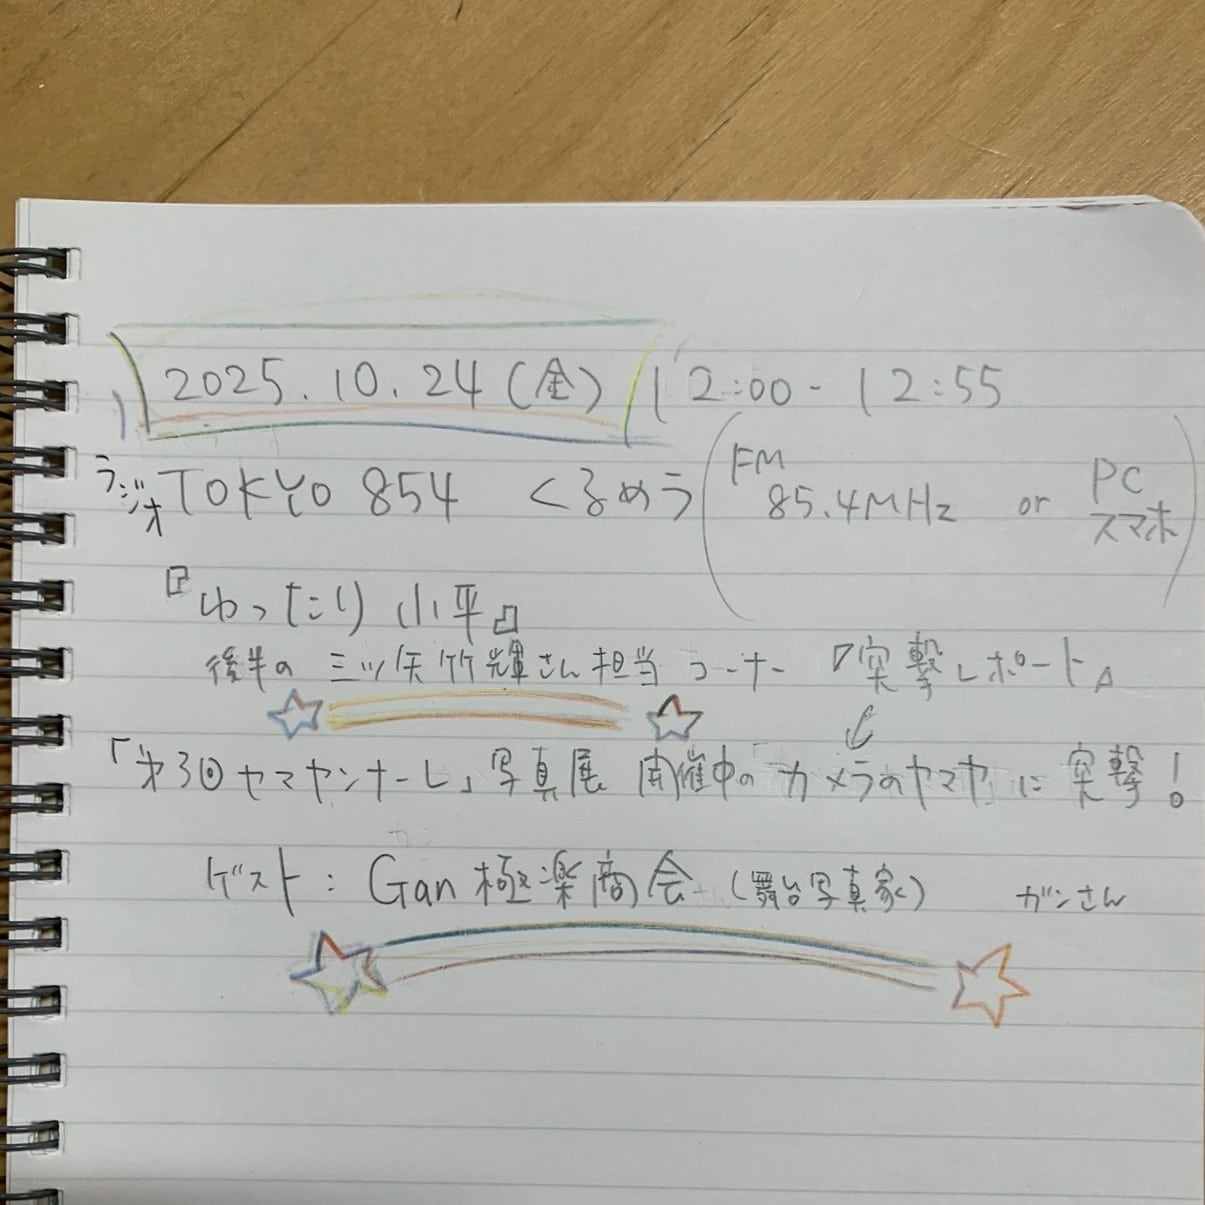 2025.10.24(金) 12:00-12:55
ラジオ TOKYO 854 くるめラ (FM 85.4MHz or PC スマホ)
『ゆったり小平』
後半の 三ツ矢竹輝さん担当コーナー 『突撃レポート』
「第3回ヤマヤンナーレ」写真展 開催中の カメラのヤマヤに突撃!
ゲスト: Gan極楽商会 (舞台写真家) ガンさん